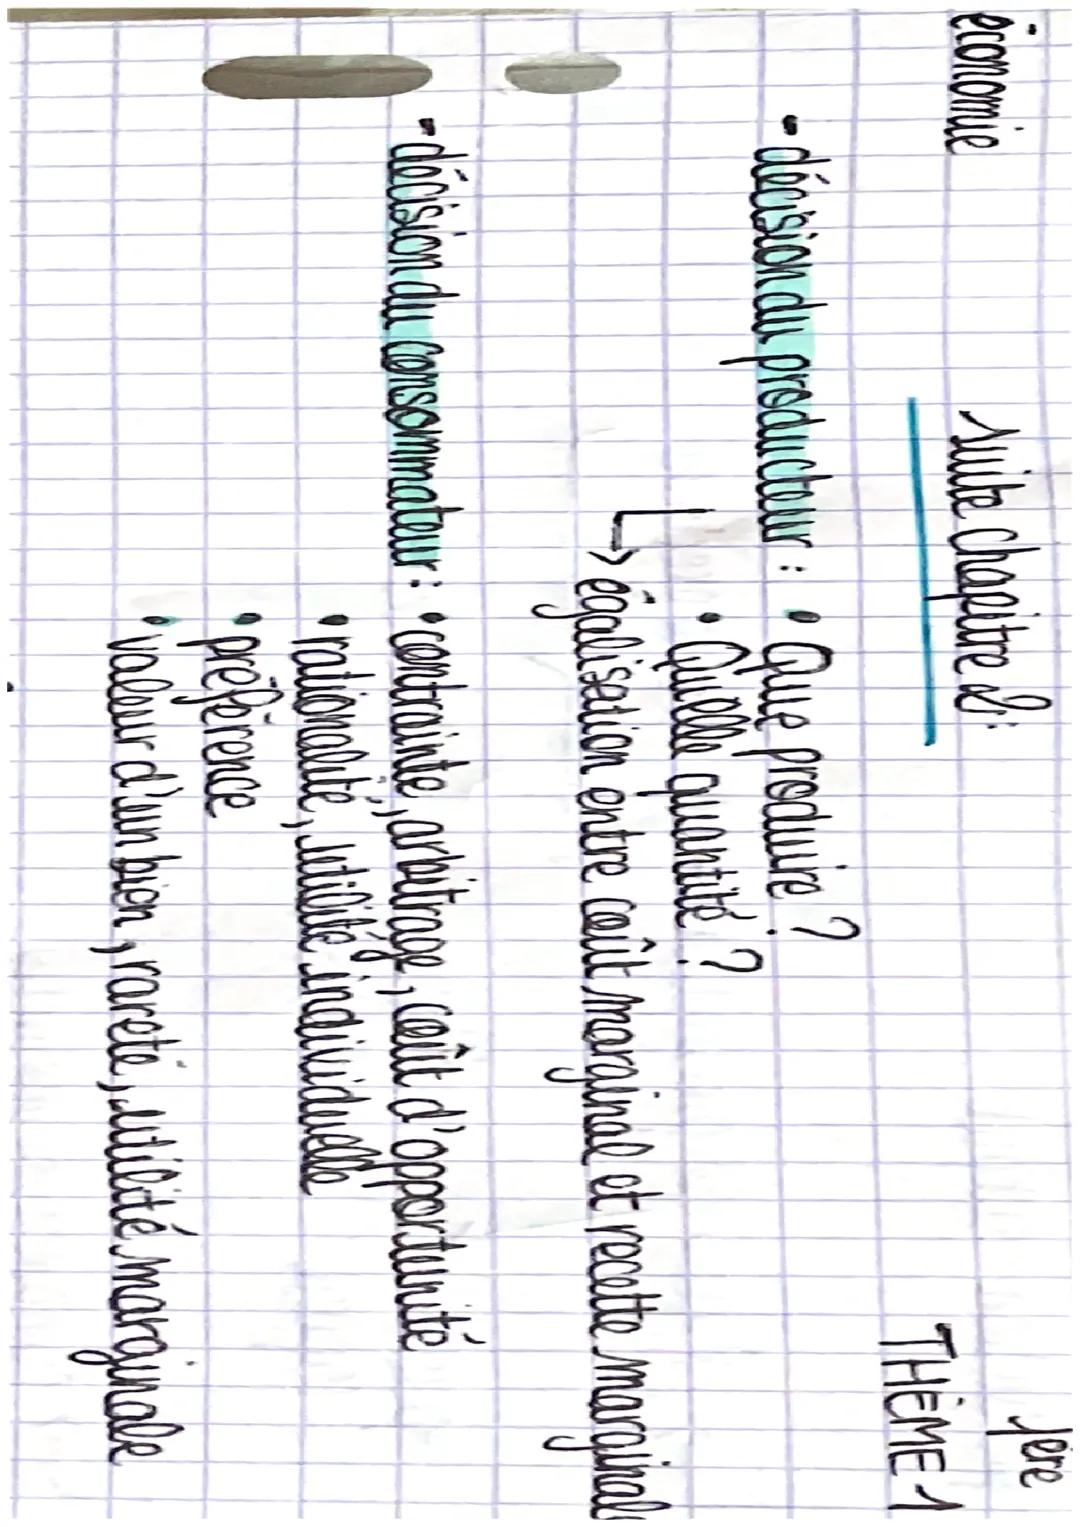 économie
1ère
Suite Chapitre 2:
THÈME 1
- décision du producteur : • Que produire ?
• Quelle quantité ?
↳ égalisation entre coût marginal et recette marginal
- décision du consommateur : • contrainte, arbitrage, coût d'opportunité
• rationalité, utilité individuelle
• préférence
• valeur d'un bien, rareté, utilité marginale